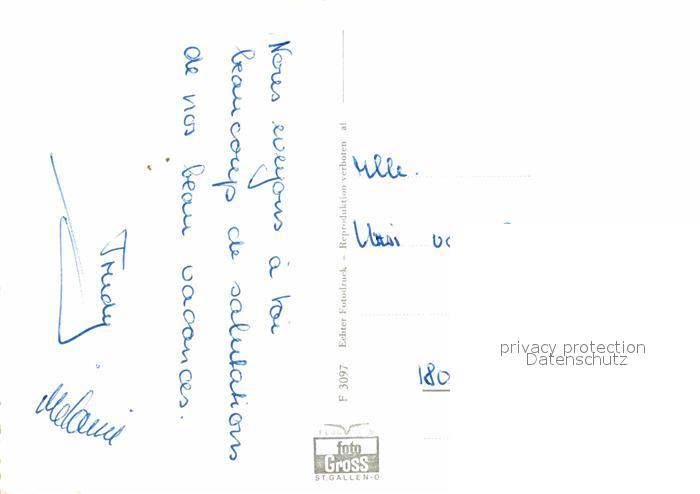 Nous evoyons à toi
beaucoup de salutations
de nos beau vacances.
Trudy
Melanie
Mlle.
180
F 3097 Echter Fotodruck – Reproduktion verboten al
FLUG
foto
Gross
ST. GALLEN-O
privacy protection
Datenschutz